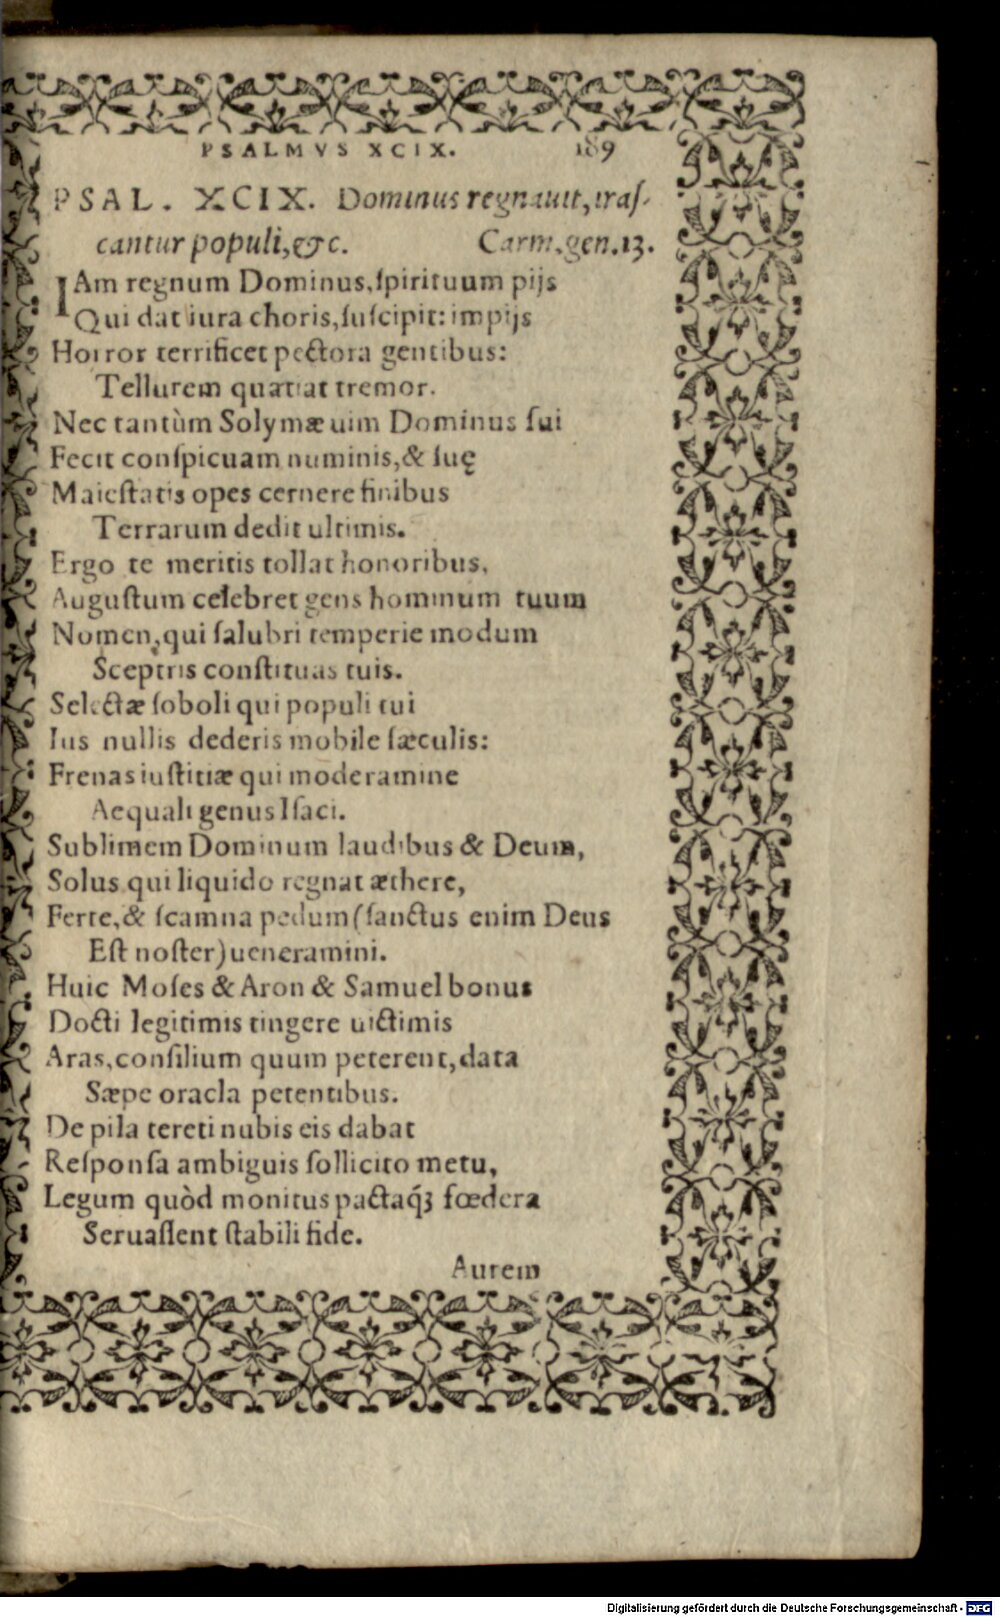 PSALMVS XCIX. 189
PSAL. XCIX. Dominus regnauit, iraſ-
cantur populi, &c. Carm. gen. 13.
IAm regnum Dominus, ſpirituum pijs
Qui dat iura choris, ſuſcipit: impijs
Horror terrificet pectora gentibus:
Tellurem quatiat tremor.
Nec tantùm Solymæ uim Dominus ſui
Fecit conſpicuam numinis, & ſuę
Maieſtatis opes cernere finibus
Terrarum dedit ultimis.
Ergo te meritis tollat honoribus,
Auguſtum celebret gens hominum tuum
Nomen, qui ſalubri temperie modum
Sceptris conſtituas tuis.
Selectæ ſoboli qui populi tui
Ius nullis dederis mobile ſæculis:
Frenas iuſtitiæ qui moderamine
Aequali genus Iſaci.
Sublimem Dominum laudibus & Deum,
Solus qui liquido regnat æthere,
Ferte, & ſcamna pedum (ſanctus enim Deus
Eſt noſter) ueneramini.
Huic Moſes & Aron & Samuel bonus
Docti legitimis tingere uictimis
Aras, conſilium quum peterent, data
Sæpe oracla petentibus.
De pila tereti nubis eis dabat
Reſponſa ambiguis ſollicito metu,
Legum quòd monitus pactaq́ꝫ fœdera
Seruaſſent ſtabili fide.
Aurem
Digitalisierung gefördert durch die Deutsche Forschungsgemeinschaft - DFG